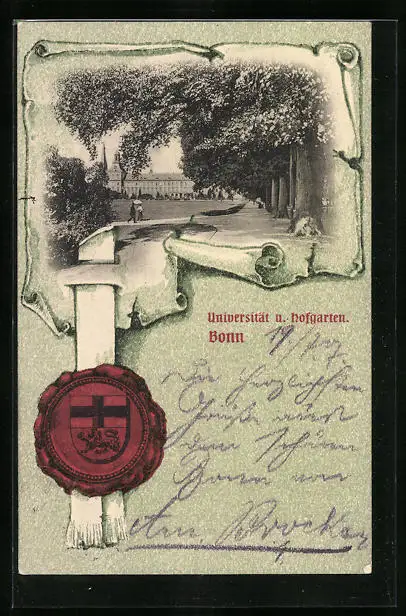 Universität u. Hofgarten.
Bonn
Die herzlichsten
Grüße aus
dem schönen
Bonn von